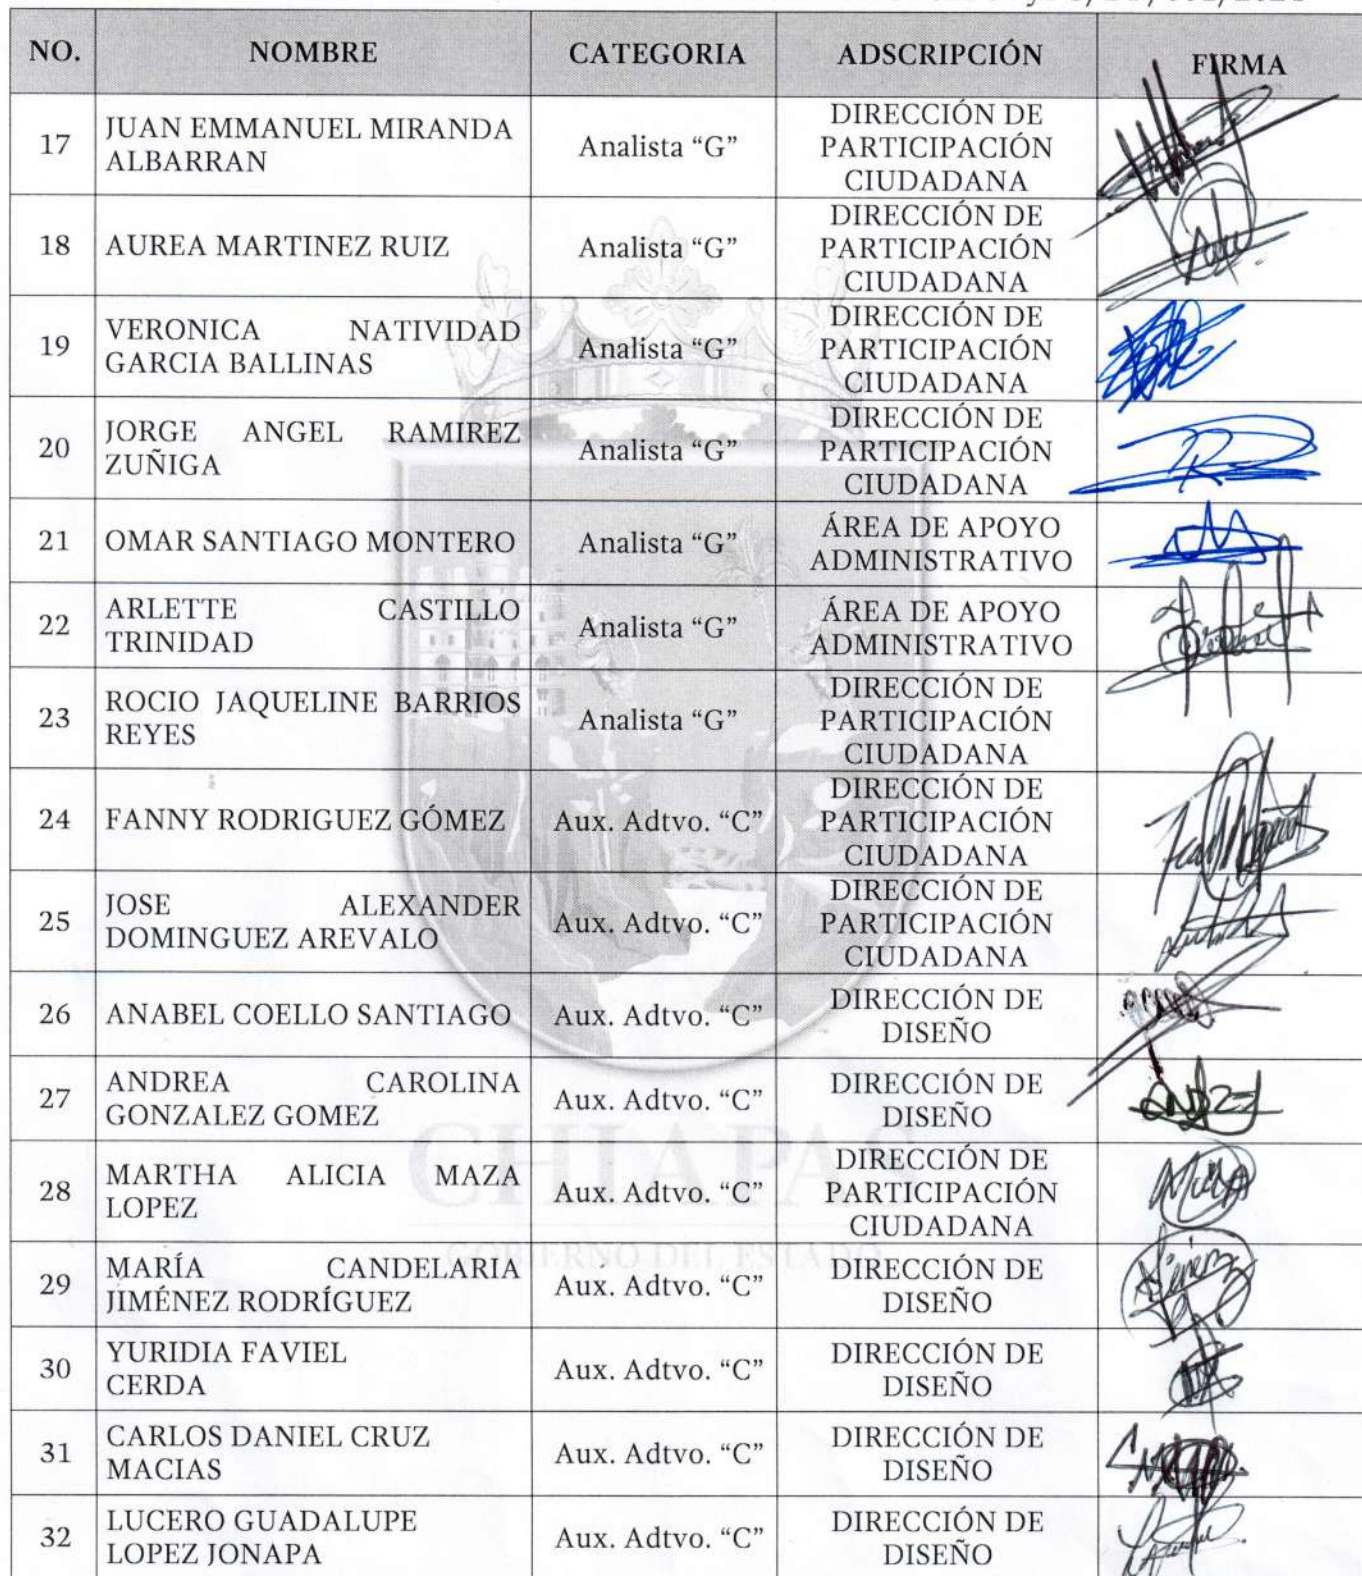 NO. NOMBRE CATEGORIA ADSCRIPCIÓN FIRMA
17 JUAN EMMANUEL MIRANDA
ALBARRAN
Analista “G”
DIRECCIÓN DE
PARTICIPACIÓN
CIUDADANA
18 AUREA MARTINEZ RUIZ
Analista “G”
DIRECCIÓN DE
PARTICIPACIÓN
CIUDADANA
19 VERONICA NATIVIDAD
GARCIA BALLINAS
Analista “G”
DIRECCIÓN DE
PARTICIPACIÓN
CIUDADANA
20 JORGE ANGEL RAMIREZ
ZUÑIGA
Analista “G”
DIRECCIÓN DE
PARTICIPACIÓN
CIUDADANA
21 OMAR SANTIAGO MONTERO
Analista “G”
ÁREA DE APOYO
ADMINISTRATIVO
22 ARLETTE CASTILLO
TRINIDAD
Analista “G”
ÁREA DE APOYO
ADMINISTRATIVO
23 ROCIO JAQUELINE BARRIOS
REYES
Analista “G”
DIRECCIÓN DE
PARTICIPACIÓN
CIUDADANA
24 FANNY RODRIGUEZ GÓMEZ
Aux. Adtvo. “C”
DIRECCIÓN DE
PARTICIPACIÓN
CIUDADANA
25 JOSE ALEXANDER
DOMINGUEZ AREVALO
Aux. Adtvo. “C”
DIRECCIÓN DE
PARTICIPACIÓN
CIUDADANA
26 ANABEL COELLO SANTIAGO
Aux. Adtvo. “C”
DIRECCIÓN DE
DISEÑO
27 ANDREA CAROLINA
GONZALEZ GOMEZ
Aux. Adtvo. “C”
DIRECCIÓN DE
DISEÑO
CHIAPAS
28 MARTHA ALICIA MAZA
LOPEZ
Aux. Adtvo. “C”
DIRECCIÓN DE
PARTICIPACIÓN
CIUDADANA
GOBIERNO DEL ESTADO
29 MARÍA CANDELARIA
JIMÉNEZ RODRÍGUEZ
Aux. Adtvo. “C”
DIRECCIÓN DE
DISEÑO
30 YURIDIA FAVIEL
CERDA
Aux. Adtvo. “C”
DIRECCIÓN DE
DISEÑO
31 CARLOS DANIEL CRUZ
MACIAS
Aux. Adtvo. “C”
DIRECCIÓN DE
DISEÑO
32 LUCERO GUADALUPE
LOPEZ JONAPA
Aux. Adtvo. “C”
DIRECCIÓN DE
DISEÑO